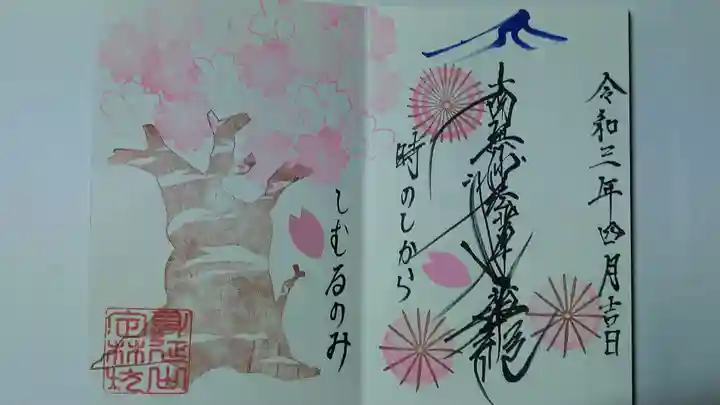 令和三年四月吉日
南無妙法蓮華経
時のしから
しむるのみ
身延山
定林坊